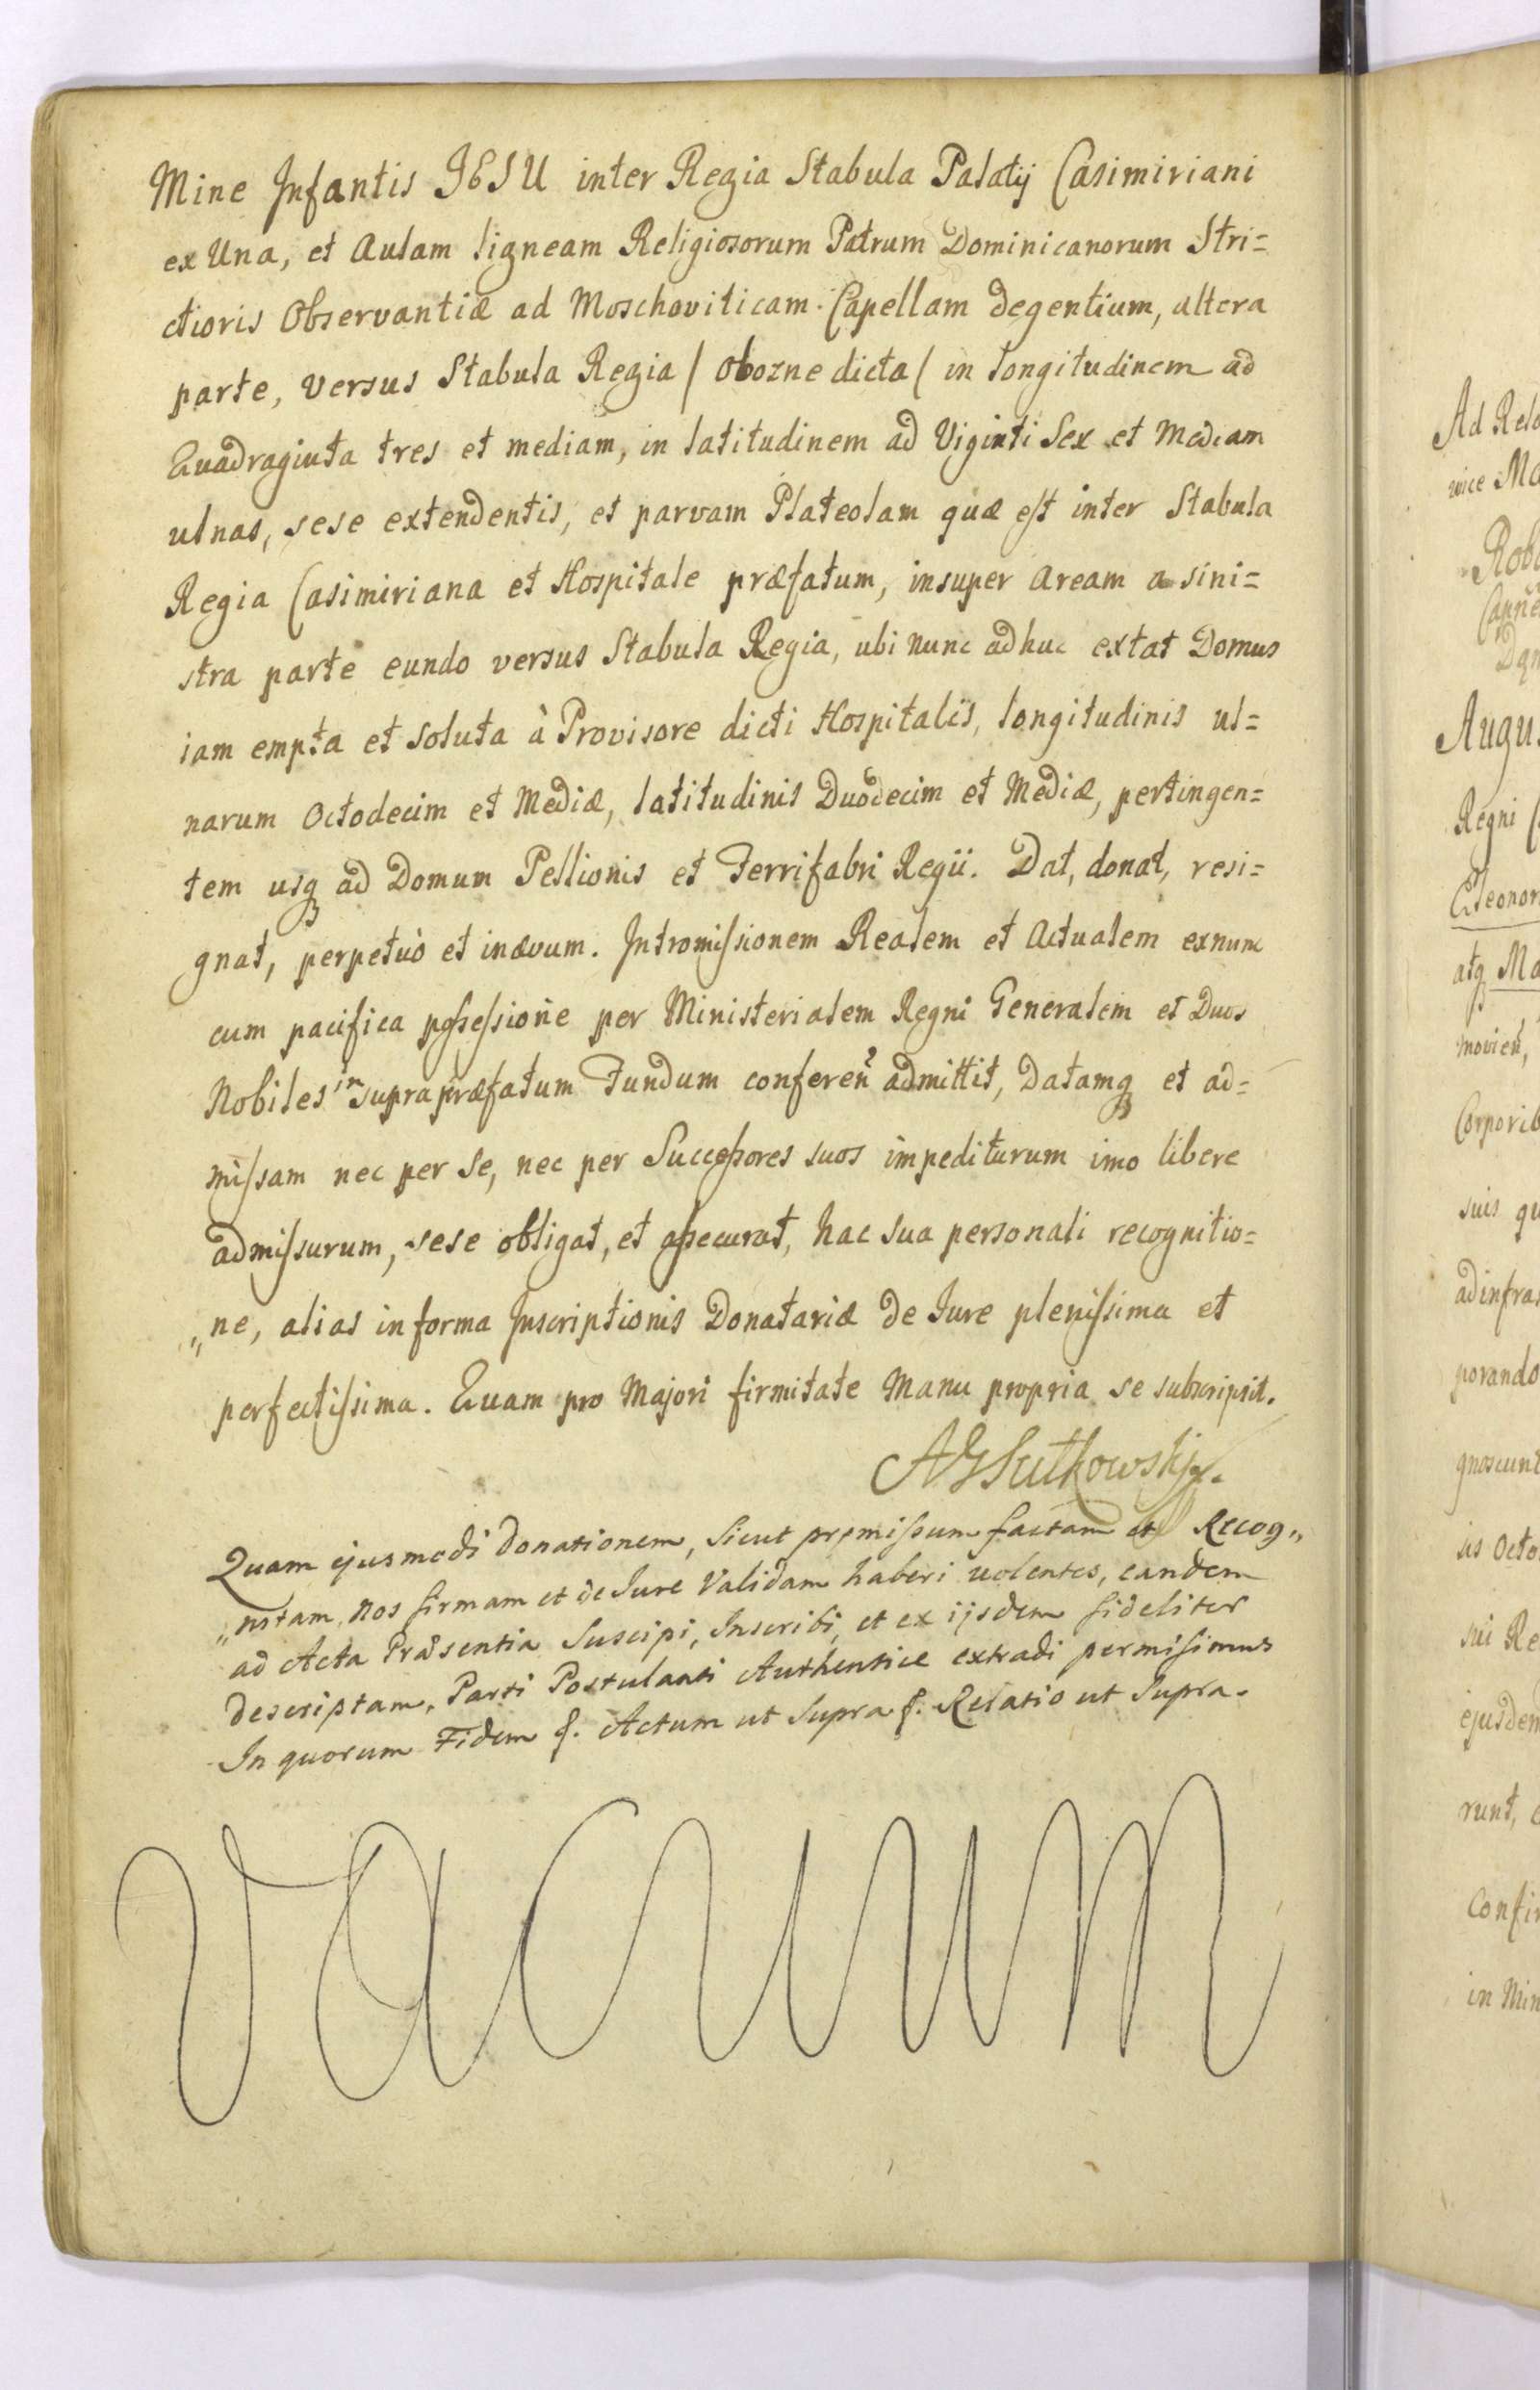 Mine Infantis JESU inter Regia Stabula Palatij Casimiriani
ex Una, et Aulam ligneam Religiosorum Patrum Dominicanorum Stri=
ctioris Observantiæ ad Moschoviticam Capellam degentium, altera
parte, versus Stabula Regia / Obozne dicta / in longitudinem ad
Quadraginta tres et mediam, in latitudinem ad Viginti Sex et Mediam
ulnas, sese extendentis, et parvam Plateolam quæ est inter Stabula
Regia Casimiriana et Hospitale præfatum, insuper Aream a sini=
stra parte eundo versus Stabula Regia, ubi nunc adhuc extat Domus
iam empta et soluta à Provisore dicti Hospitalis, longitudinis ul=
narum Octodecim et Mediæ, latitudinis Duodecim et Mediæ, pertingen=
tem usq ad Domum Pellionis et Ferrifabri Regii. Dat, donat, resi=
gnat, perpetuò et inævum. Intromissionem Realem et Actualem exnunc
cum pacifica possessione per Ministerialem Regni Generalem et Duos
Nobiles in supra præfatum Fundum conferen admittit, Datamq et ad=
missam nec per Se, nec per Successores suos impediturum imo libere
admissurum, sese obligat, et assecurat, hac sua personali recognitio=
„ne, alias in forma Inscriptionis Donatariæ de Jure plenissima et
perfectissima. Quam pro Majori firmitate Manu propria se subscripsit.
AGSutkowskj
Quam ejusmodi Donationem, Sicut premissum factam et Recog„
„nitam, Nos firmam et de Jure Validam haberi volentes, eandem
ad Acta Præsentia Suscipi, Inscribi, et ex ijsdem fideliter
descriptam, Parti Postulanti Authentice extradi permisimus
In quorum Fidem &. Actum ut Supra &. Relatio ut Supra.
vacuum
Ad Rela
nice Ma
Augus
Regni C
Eleonor
atq Ma
movien,
Corporib
suis qu
adinfra
porando
gnoscunt
sis Octo
sui Re
ejusdem
runt,
Confir
in Min